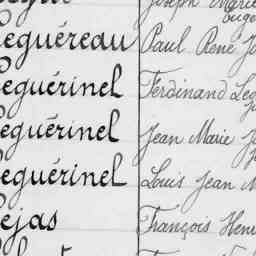 Joseph Marie
eguéreau Paul René J
eguérinel Ferdinand Le
eguérinel Jean Marie J
eguérinel Louis Jean M
ejas François Hen